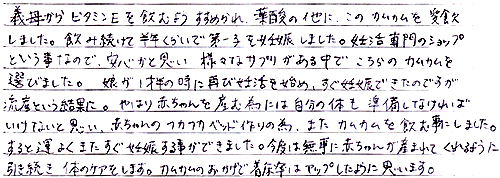 義母からビタミンEを飲むようすすめられ、葉酸の他に、このカムカムを愛飲
しました。飲み続けて半年くらいで第一子を妊娠しました。妊活専門のショップ
という事なので、安心かと思い 様々なサプリがある中で こちらのカムカムを
選びました。 娘が1才の時に再び妊活を始め、すぐ妊娠できたのですが
流産という結果に。やはり赤ちゃんを産む為には自分の体も準備しなければ
いけないと思い、赤ちゃんのフカフカベッド作りの為、またカムカムを飲む事にしました。
すると運よくまたすぐ妊娠する事ができました。今度は無事に赤ちゃんが産まれてくれるように
引き続き 体のケアをします。カムカムのおかげで着床率はアップしたように思います。